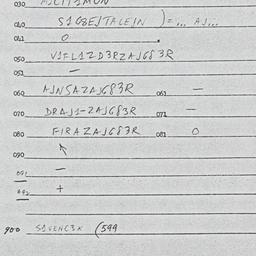 030
040 S1G8E/TALE/N ) = ... AJ...
041 0
050 V1FL1ZD3RZAJG83R
051 —
060 AJNSAZAJG83R 061 —
070 DRAJ1-ZAJG83R 071 —
080 FIRAZAJG83R 081 0
090
091 —
092 +
900 S1VENC3K (599